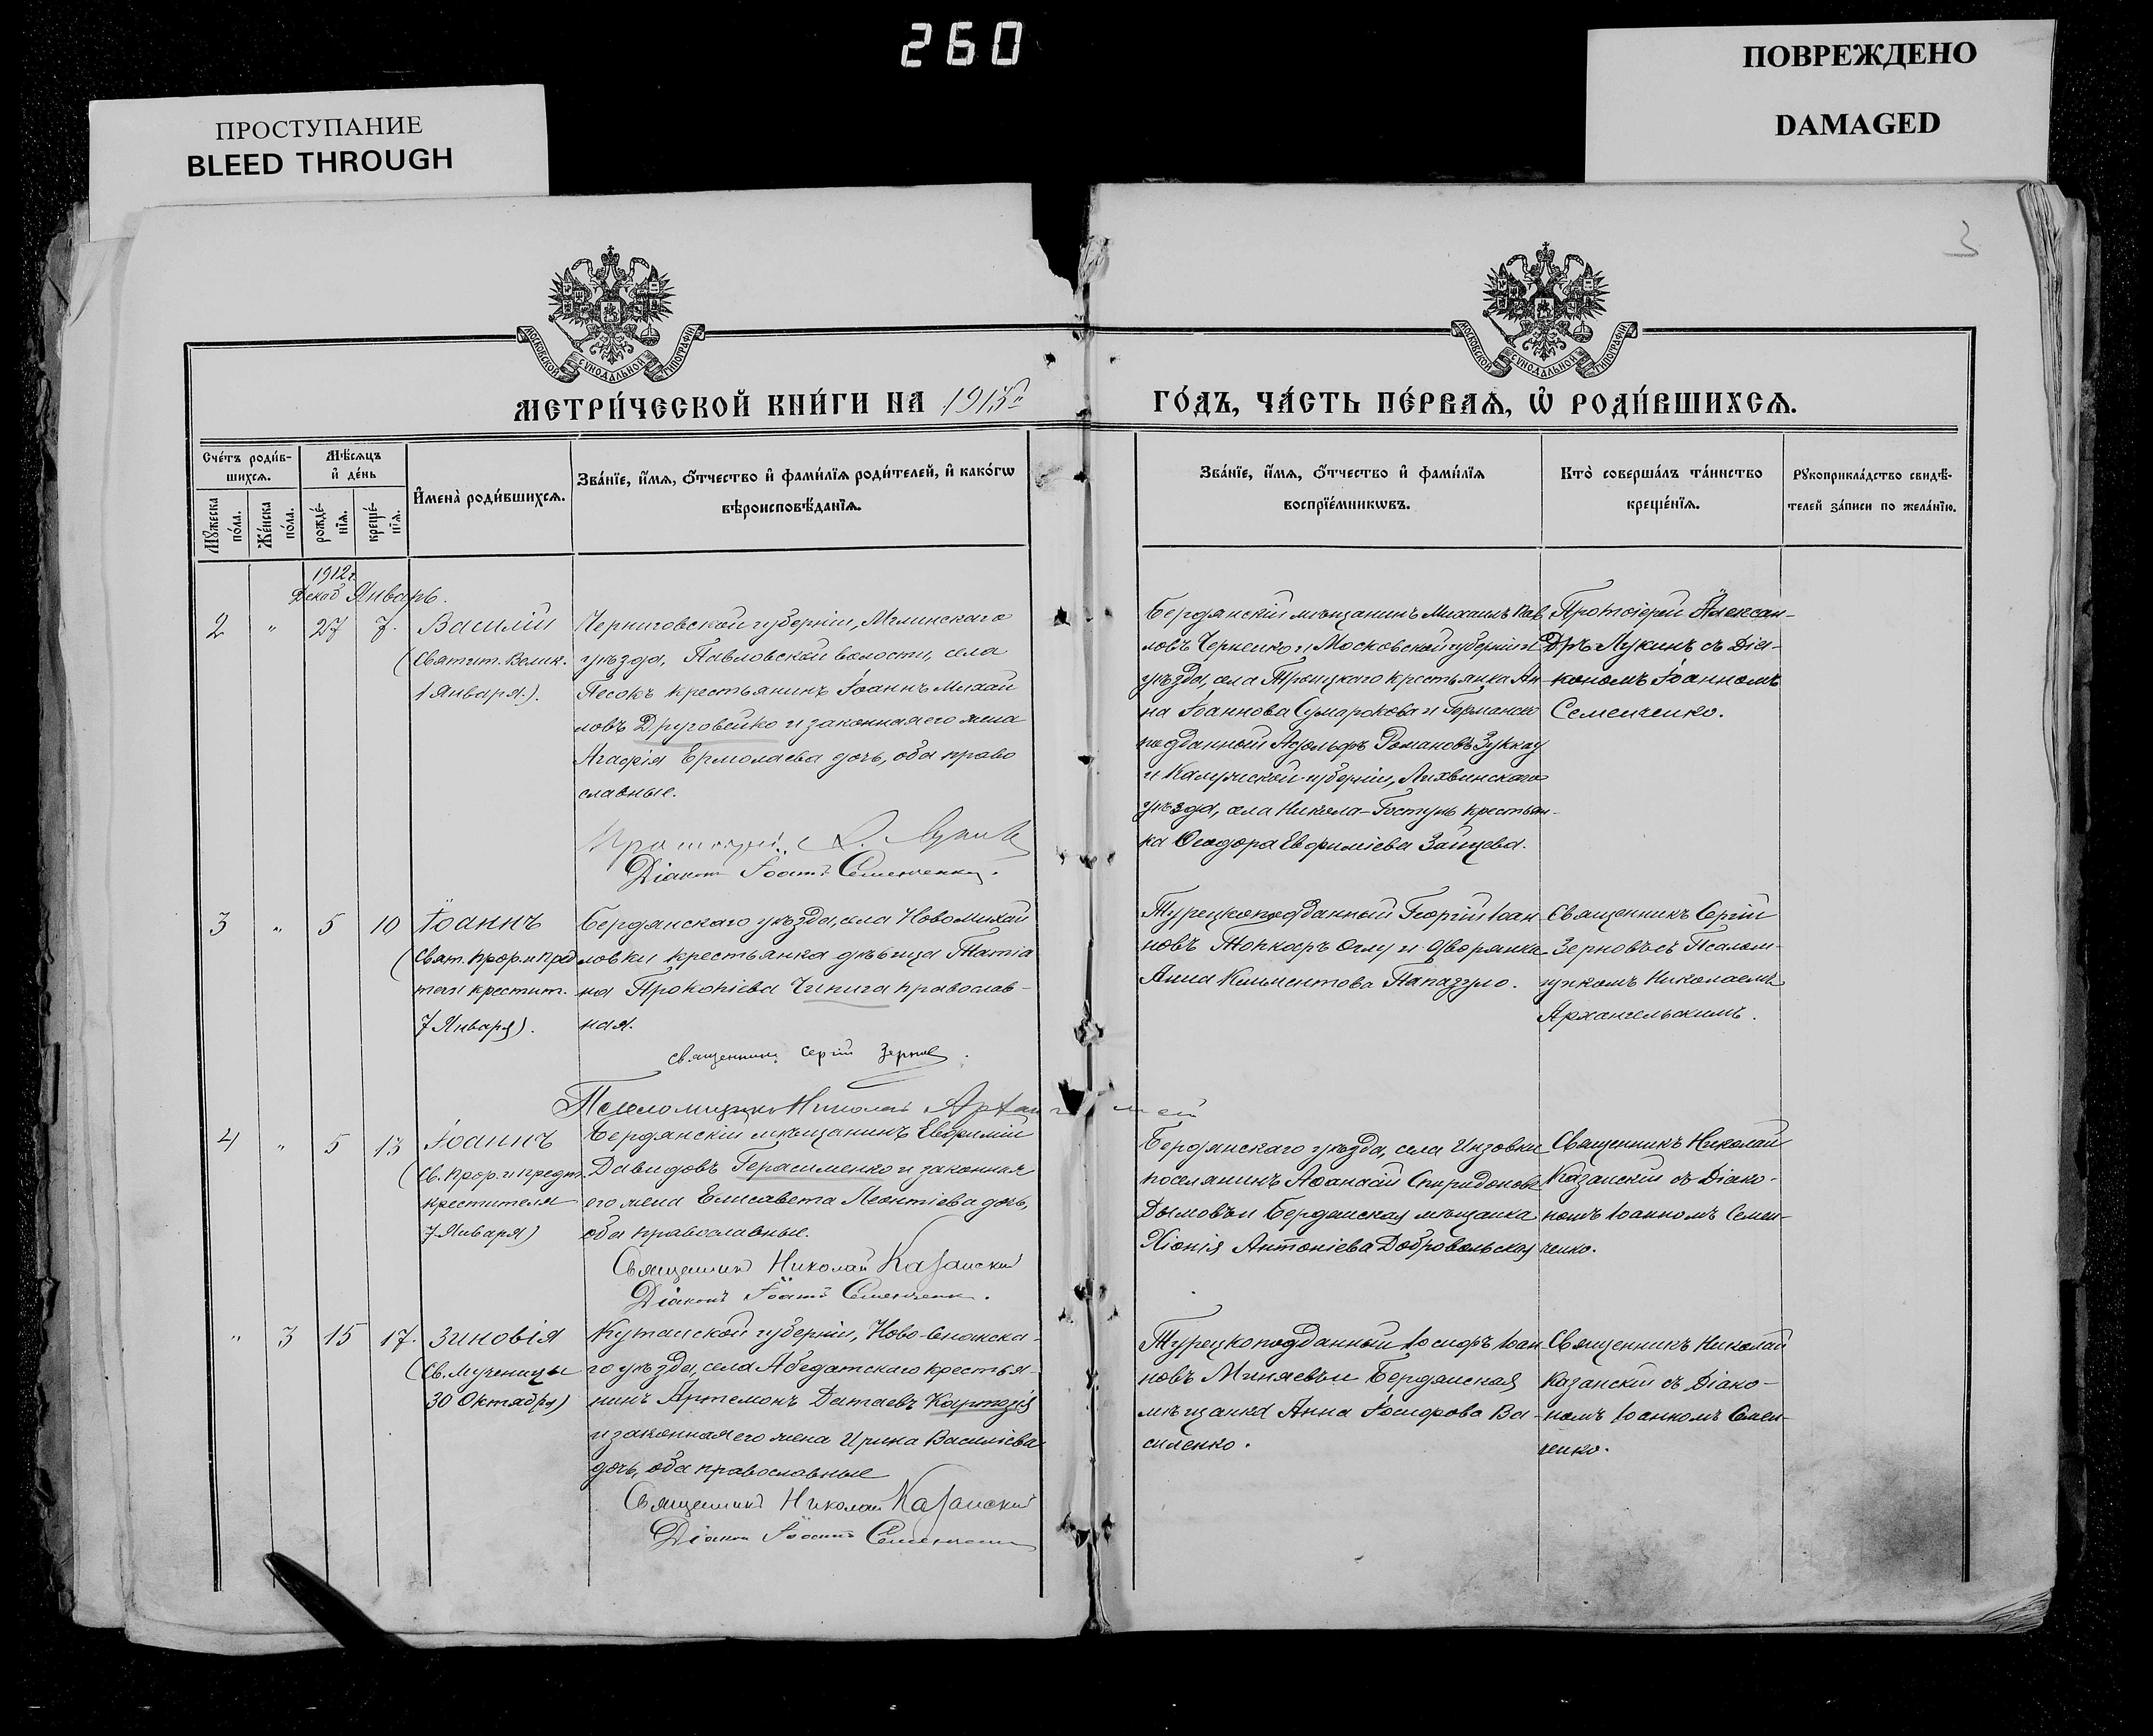 260
ПРОСТУПАНИЕ
BLEED THROUGH
ПОВРЕЖДЕНО
DAMAGED
3
МОСКОВСКОЙ СѴНОДАЛЬНОЙ ТИПОГРАФІИ
МОСКОВСКОЙ СѴНОДАЛЬНОЙ ТИПОГРАФІИ
МЕТРИ́ЧЕСКОЙ КНИ́ГИ НА 1913
ГО́ДЪ, ЧА́СТЬ ПЕ́РВАѦ, Ѡ҆ РОДИ́ВШИХСѦ.
Сче́тъ роди́в-
шихсѧ.
Мꙋ́жеска
по́ла.
Же́нска
по́ла.
Мѣ́сѧцъ
и҆ де́нь
рожде́-
нїѧ.
креще́-
нїѧ.
И҆мена̀ роди́вшихсѧ.
Зва́нїе, и҆́мѧ, ѻ҆́тчество и҆ фами́лїѧ роди́телей, и҆ како́гѡ
вѣроисповѣ́данїѧ.
Зва́нїе, и҆́мѧ, ѻ҆́тчество и҆ фами́лїѧ
воспрїе́мникѡвъ.
Кто̀ соверша́лъ та́инство
креще́нїѧ.
Рꙋкоприкла́дство свидѣ́-
телей за́писи по жела́нїю.
1912 г.
Декаб Январь.
2 " 27 7. Василій
(Святит. Велик.
1 Января.).
Черниговской губерніи, Мглинскаго
уѣзда, Павловской волости, села
Песокъ крестьянинъ Іоаннъ Михай
ловъ Друговейко и законная его жена
Агафія Ермолаева дочь, оба право
славные.
Протоіерей А. Лукинъ
Діаконъ Іоаннъ Семенченко.
Бердянскій мѣщанинъ Михаилъ Пав
ловъ Черненко и Московской губерніи и
уѣзда, села Троицкаго крестьянка Ан
на Іоаннова Сумарокова и Германско
подданный Адольфъ Романовъ Зуккау
и Калужской губерніи, Лихвинскаго
уѣзда, села Никола-Гостунь крестьян-
ка Ѳеодора Евфиміева Зайцева.
Протоіерей Алексан-
дръ Лукинъ съ Діа-
кономъ Іоанномъ
Семенченко.
3 " 5 10 Іоаннъ
(Свят. Прор. и Пред
течи крестит.
7 Января).
Бердянскаго уѣзда, села Новомихай
ловки крестьянка дѣвица Татіа
на Прокопіева Чепига православ-
ная.
Священникъ Сергій Зерновъ.
Псаломщикъ Николай Архангельскій
Турецкоподданный Георгій Іоан
новъ Топкаръ Оглу и дворянка
Анна Климентова Папазуло.
Священникъ Сергій
Зерновъ съ Псалом-
щикомъ Николаемъ
Архангельскимъ.
4 " 5 13 Іоаннъ
(Св. Прор. и Предт.
крестителя
7 Января)
Бердянскій мѣщанинъ Евфимій
Давидовъ Герасименко и законная
его жена Елисавета Леонтіева дочь,
оба православные.
Священникъ Николай Казанскій
Діаконъ Іоаннъ Семенченко.
Бердянскаго уѣзда, села Инзовки
поселянинъ Аѳанасій Спиридоновъ
Дымовъ и Бердянская мѣщанка
Хіонія Антоніева Добровольская
Священникъ Николай
Казанскій съ Діако-
номъ Іоанномъ Семен-
ченко.
" 3 15 17. Зиновія
(Св. Мученицы
30 Октября)
Кутаиской губерніи, Ново-Сенакска-
го уѣзда, села Абедатскаго крестья-
нинъ Артемонъ Датаевъ Картозія
и законная его жена Ирина Василіева
дочь, оба православные
Священникъ Николай Казанскій
Діаконъ Іоаннъ Семенченко
Турецкоподданный Іосифъ Іоан
новъ Миняевъ и Бердянская
мѣщанка Анна Іосифова Ва-
силенко.
Священникъ Николай
Казанскій съ Діако-
номъ Іоанномъ Семен-
ченко.